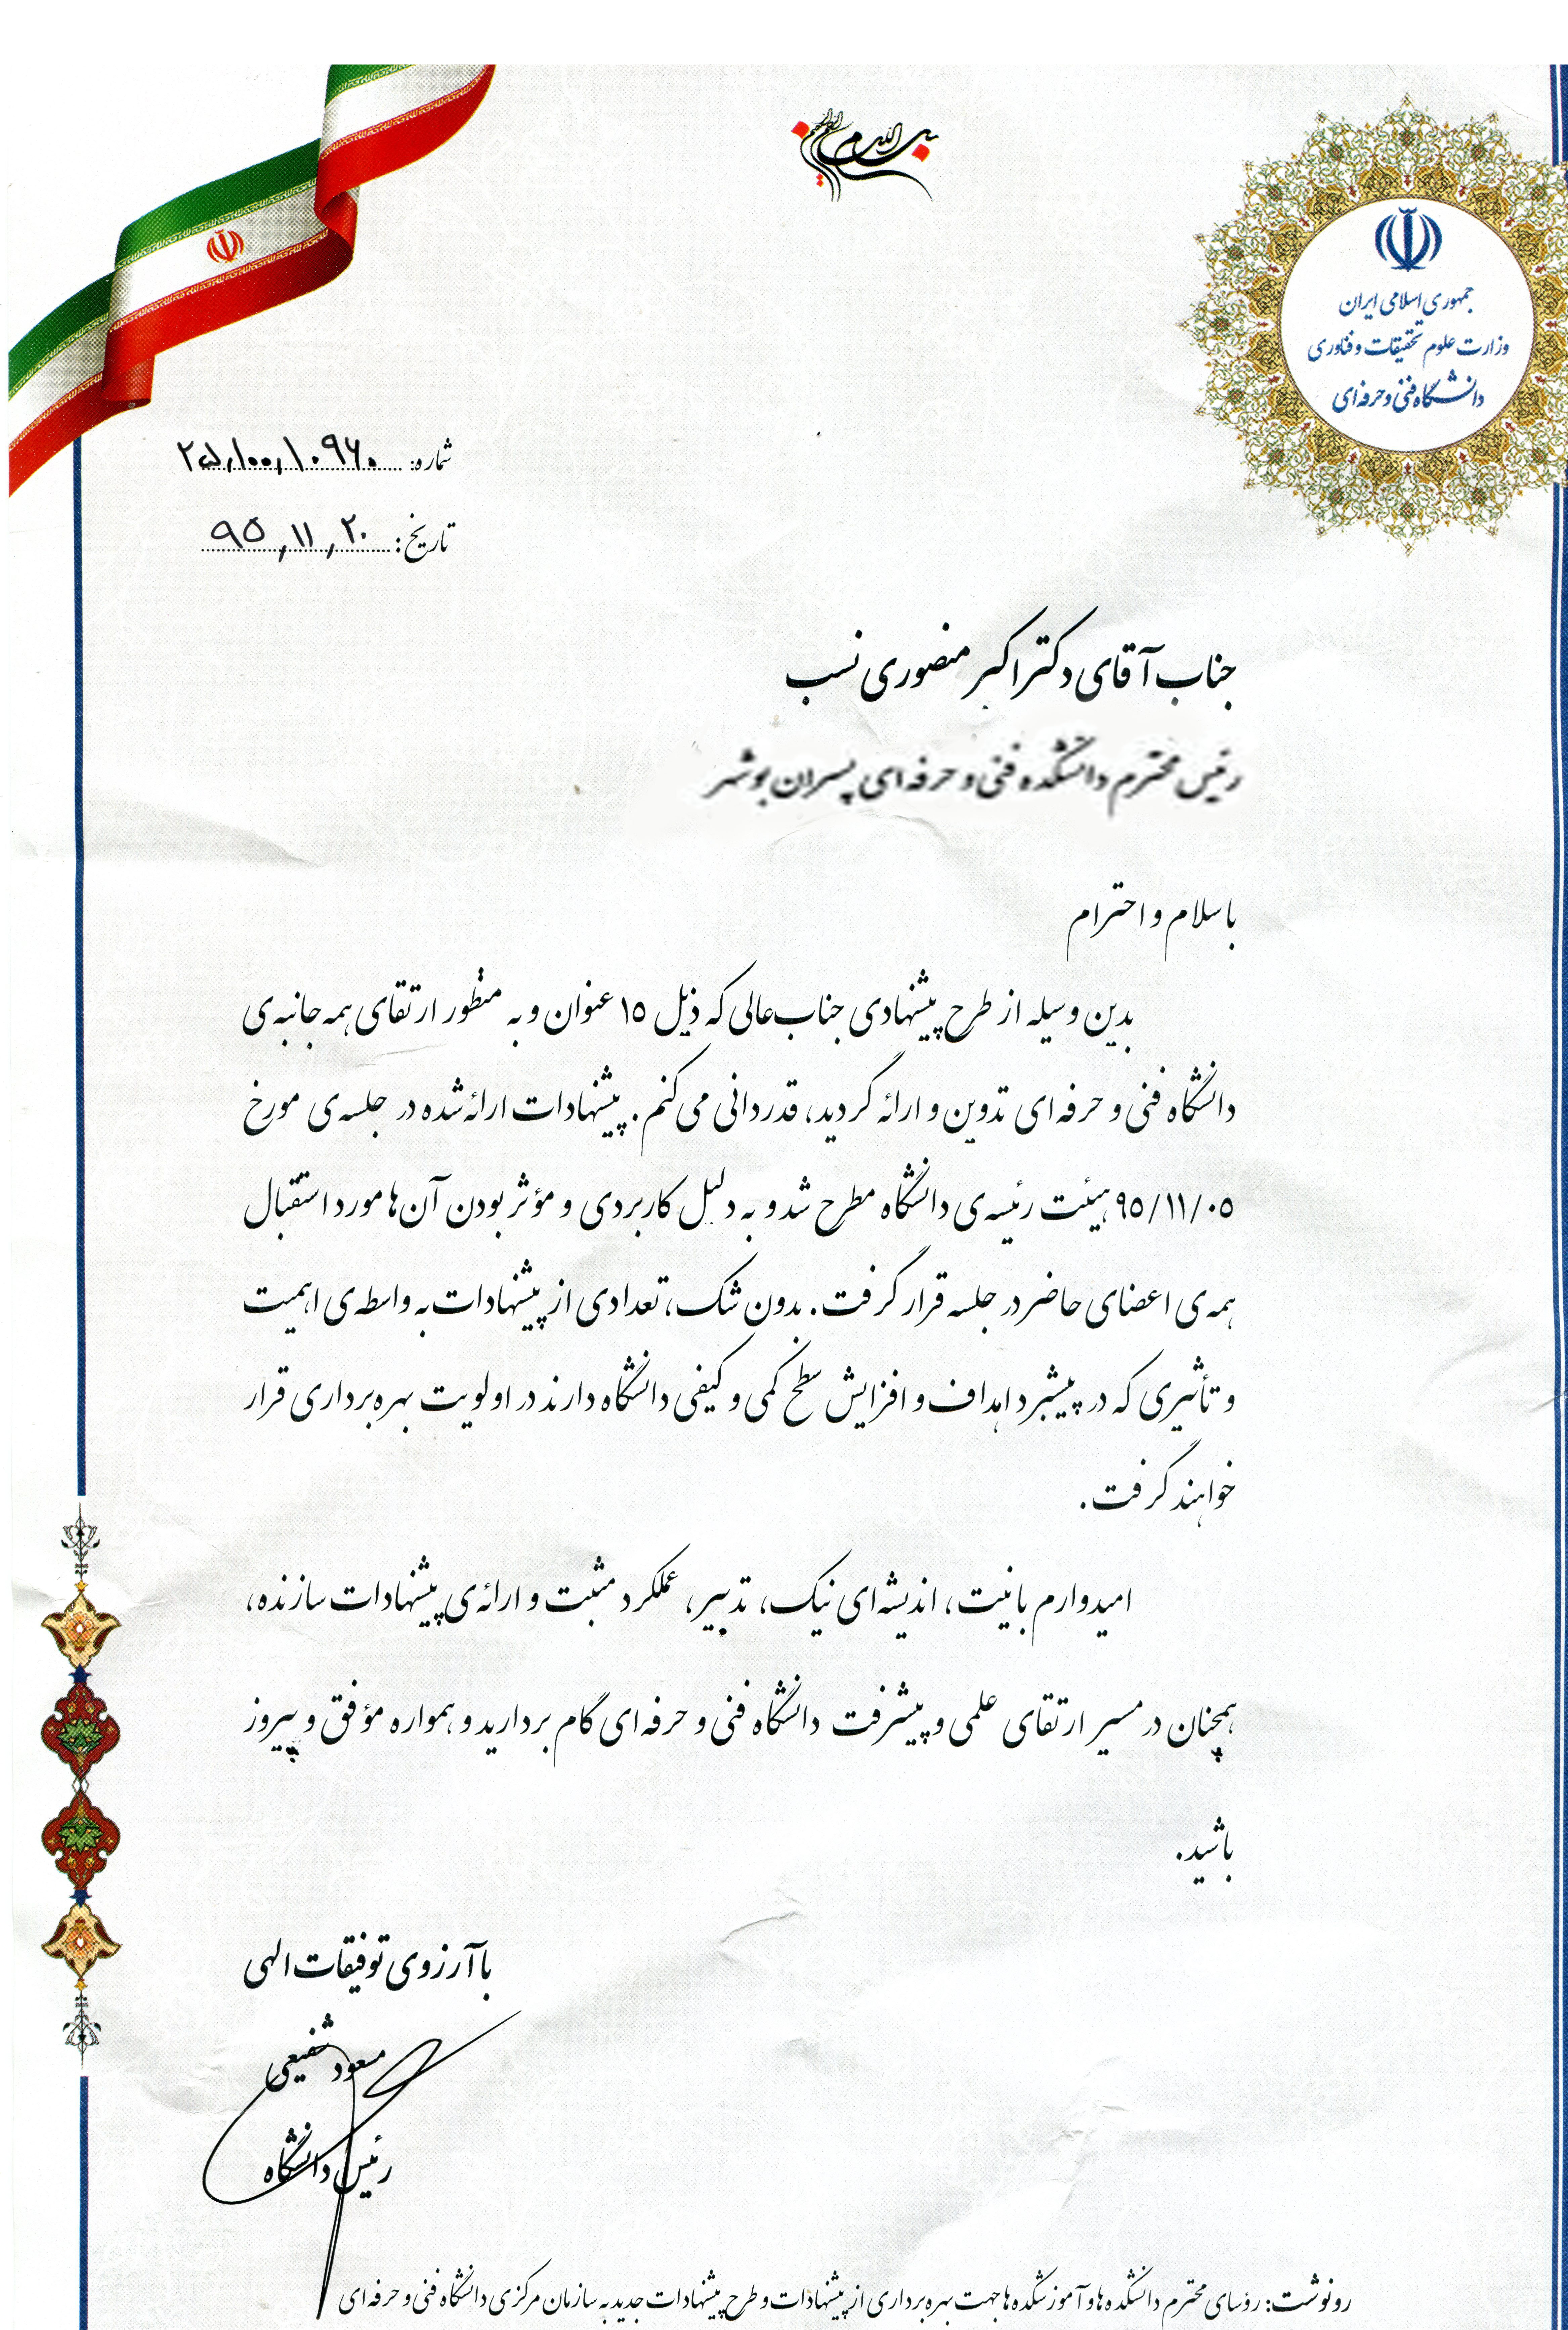 بسم الله الرحمن الرحیم
جمهوری اسلامی ایران
وزارت علوم تحقیقات و فناوری
دانشگاه فنی و حرفه‌ای
شماره:
تاریخ: ۹۵,۱۱,۲۰
جناب آقای دکتر اکبر منصوری نسب
رئیس محترم دانشکده فنی و حرفه ای پسران بوشهر
با سلام و احترام
بدین وسیله از طرح پیشنهادی جناب‌عالی که ذیل ۱۵ عنوان و به منظور ارتقای همه جانبه‌ی
دانشگاه فنی و حرفه ای تدوین و ارائه گردید، قدردانی می‌کنم. پیشنهادات ارائه شده در جلسه‌ی مورخ
۹۵/۱۱/۰۵ هیئت رئیسه‌ی دانشگاه مطرح شد و به دلیل کاربردی و مؤثر بودن آن‌ها مورد استقبال
همه‌ی اعضای حاضر در جلسه قرار گرفت. بدون شک، تعدادی از پیشنهادات به واسطه‌ی اهمیت
و تأثیری که در پیشبرد اهداف و افزایش سطح کمی و کیفی دانشگاه دارند در اولویت بهره برداری قرار
خواهند گرفت.
امیدوارم با نیت، اندیشه‌ای نیک، تدبیر، عملکرد مثبت و ارائه‌ی پیشنهادات سازنده،
همچنان در مسیر ارتقای علمی و پیشرفت دانشگاه فنی و حرفه ای گام بردارید و همواره مؤفق و پیروز
باشید.
با آرزوی توفیقات الهی
مسعود شفیعی
رئیس دانشگاه
رونوشت: رؤسای محترم دانشکده ها و آموزشکده ها جهت بهره برداری از پیشنهادات و طرح پیشنهادات جدید به سازمان مرکزی دانشگاه فنی و حرفه ای